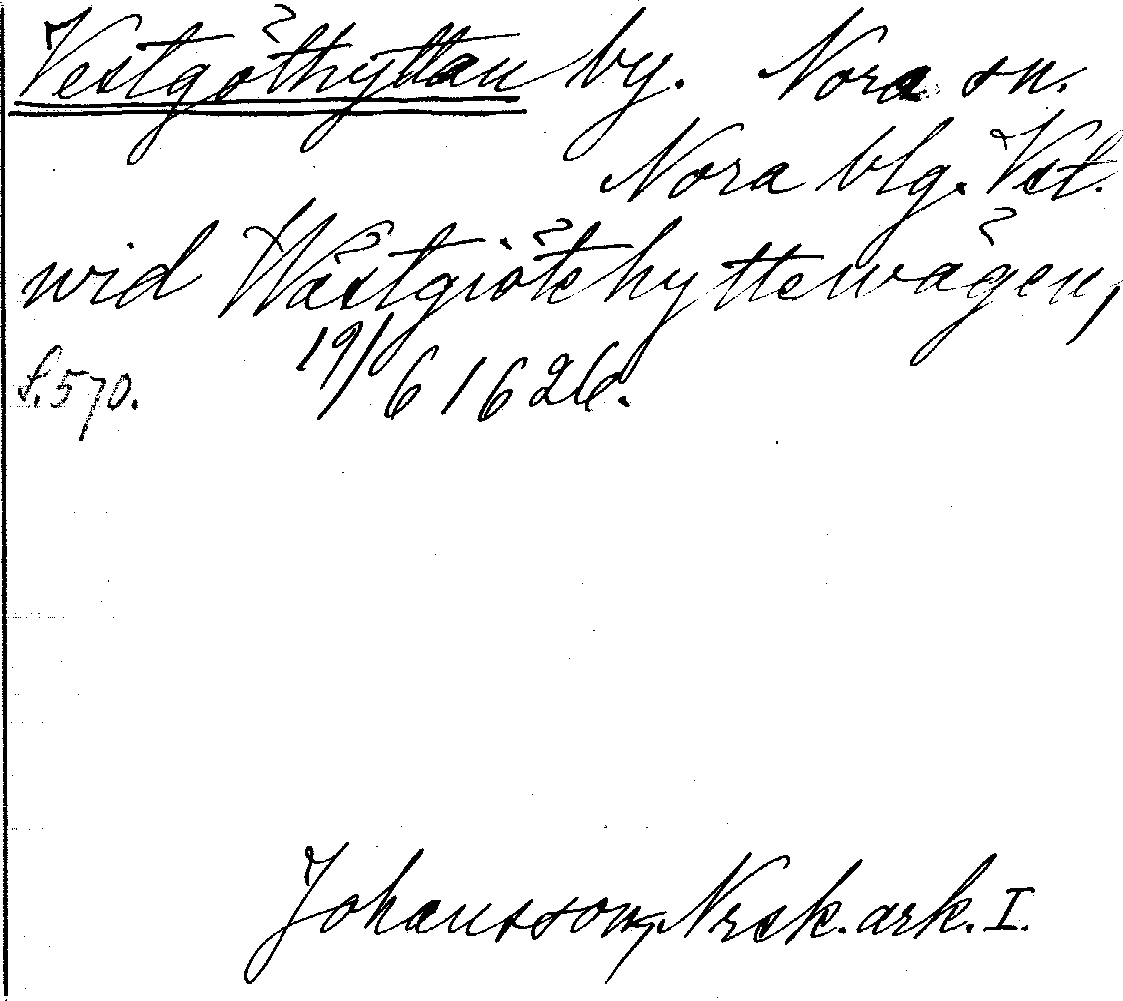 Vestgöthyttan by. Nora sn.
Nora blg. Vstl.
wid Wästgiötehyttewägen,
s. 570. 19/6 1626.
Johansson, Nrsk. ark. I.